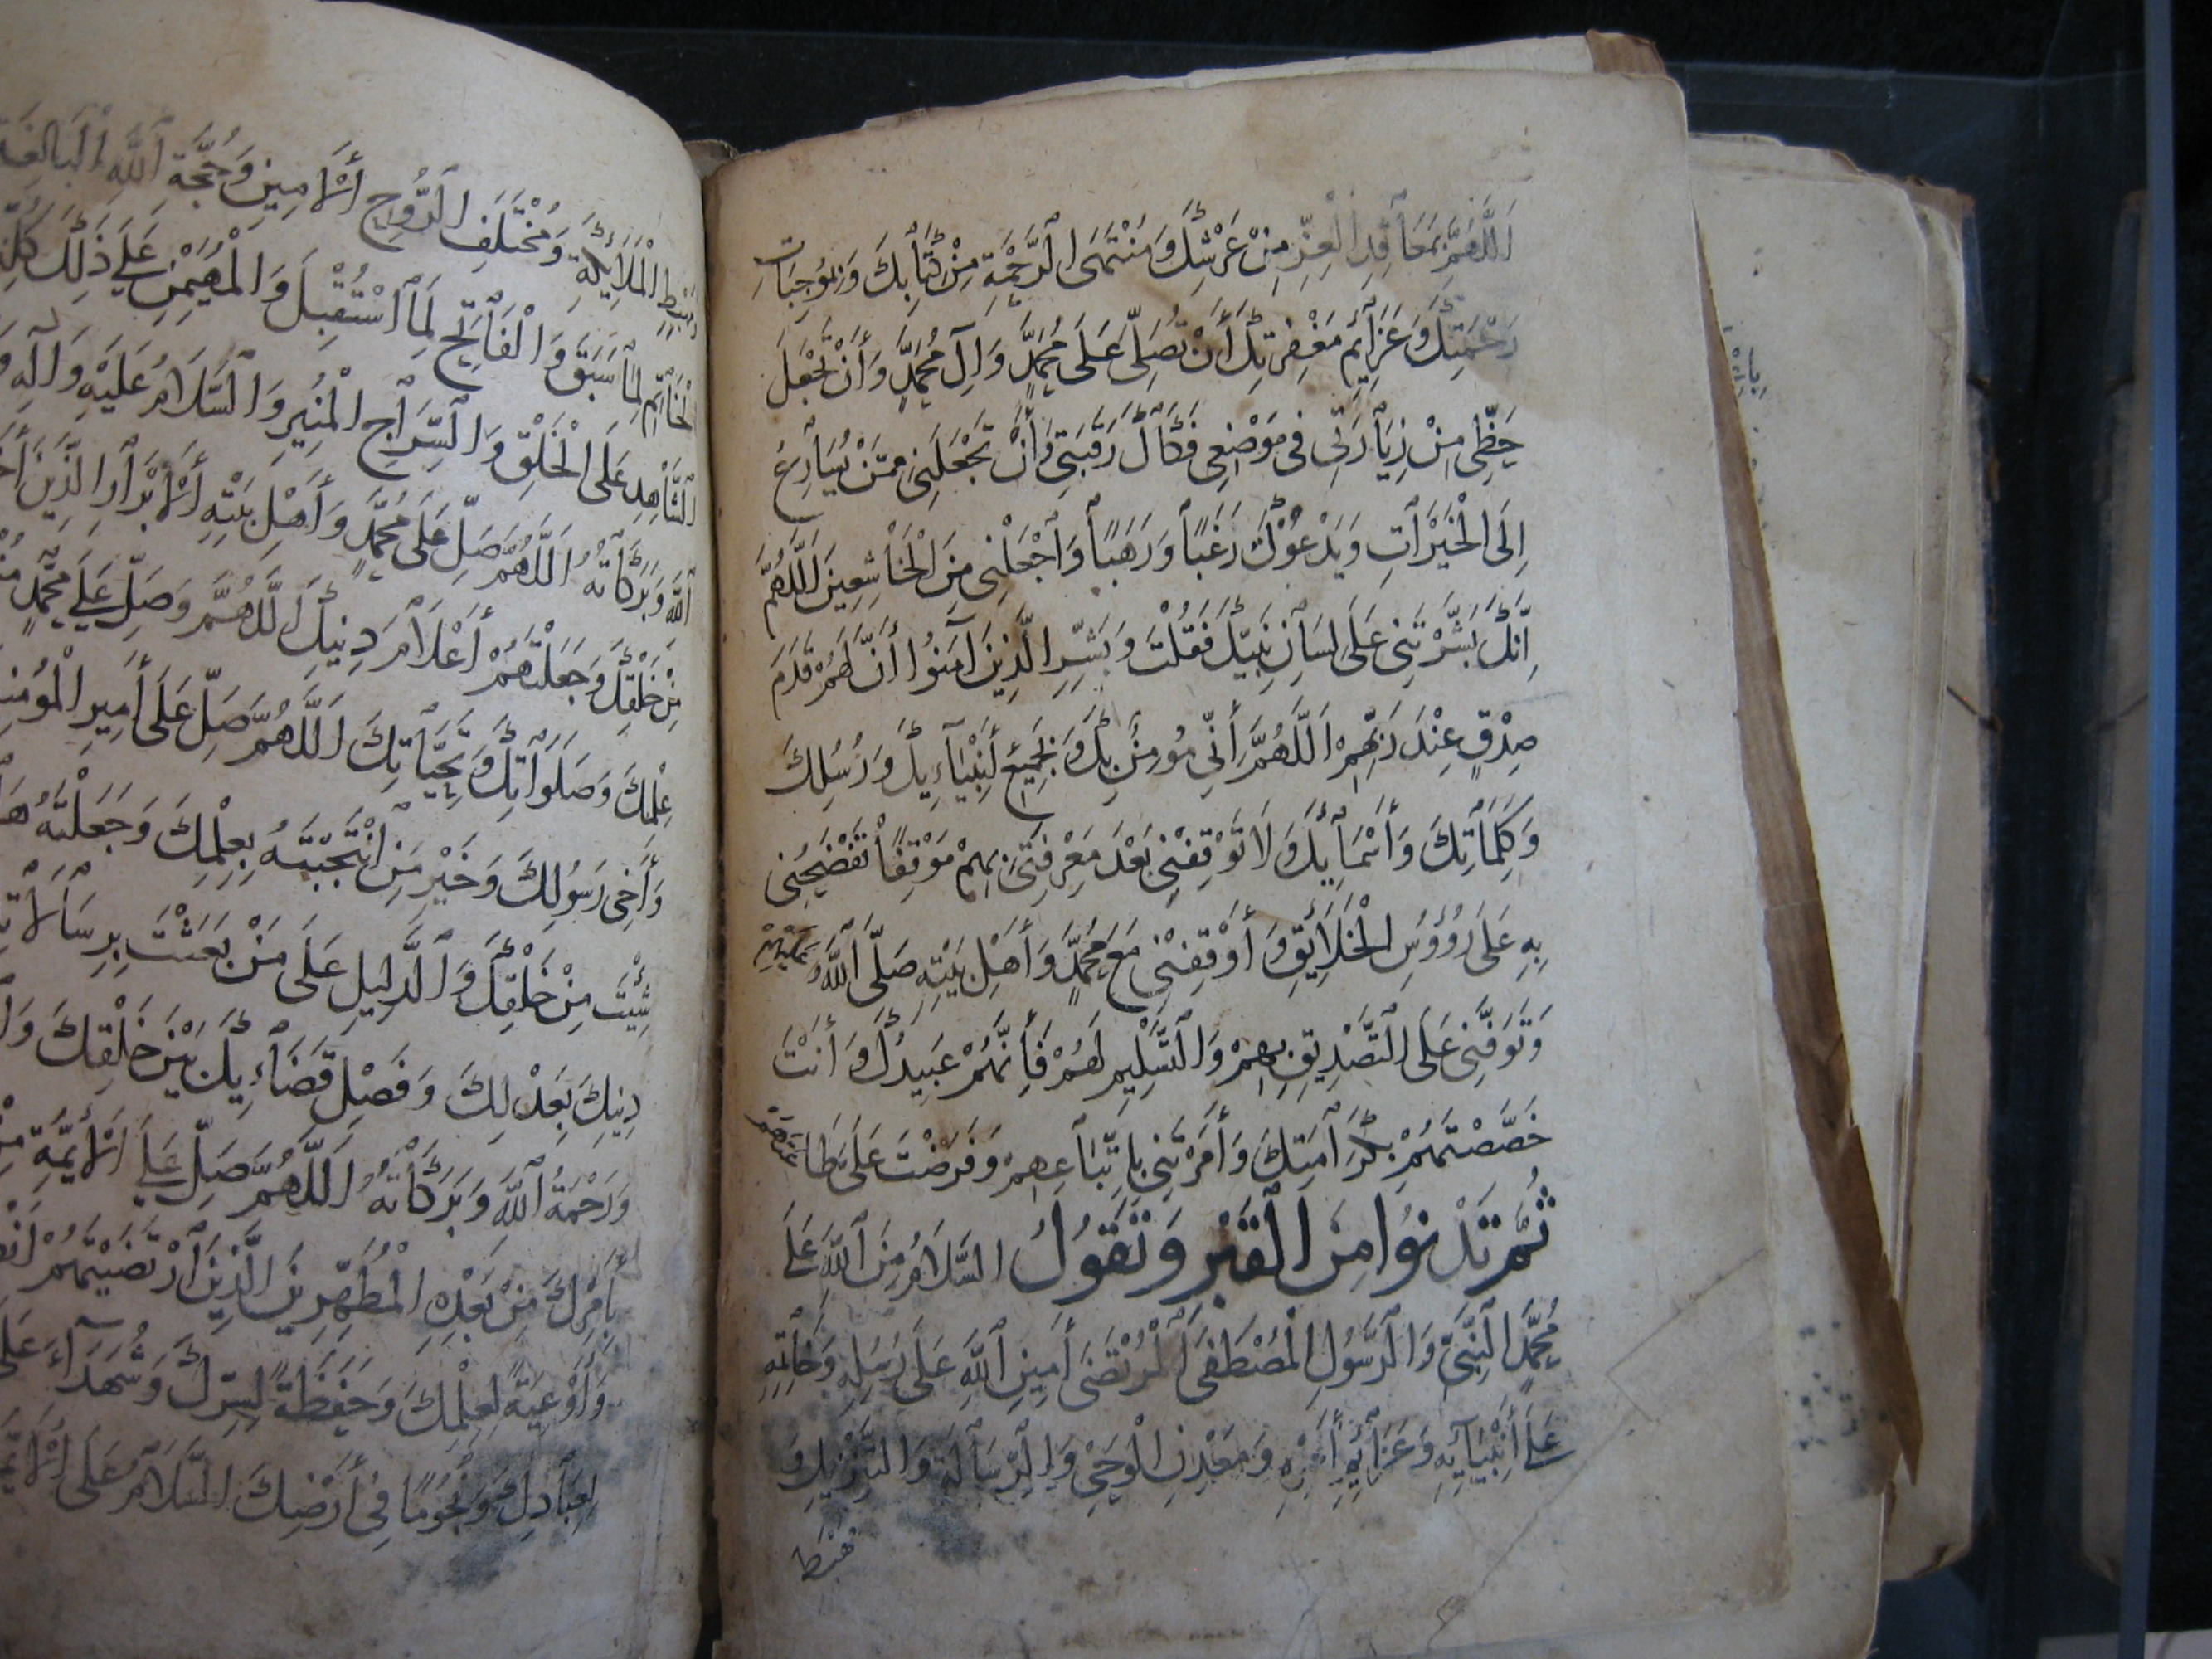 اَللّٰهُمَّ بِمَعَاقِدِ الْعِزِّ مِنْ عَرْشِكَ وَمُنْتَهَى الرَّحْمَةِ مِنْ كِتَابِكَ وَبِمُوجِبَاتِ
رَحْمَتِكَ وَعَزَائِمِ مَغْفِرَتِكَ أَنْ تُصَلِّىَ عَلَى مُحَمَّدٍ وَاٰلِ مُحَمَّدٍ وَأَنْ تَجْعَلَ
حَظِّى مِنْ زِيَارَتِى فِى مَوْضِعِى فَكَاكَ رَقَبَتِى وَأَنْ تَجْعَلَنِى مِمَّنْ يُسَارِعُ
اِلَى الْخَيْرَاتِ وَيَدْعُوْكَ رَغَبًا وَرَهَبًا وَاجْعَلْنِى مِنَ الْخَاشِعِينَ اَللّٰهُمَّ
اِنَّكَ بَشَّرْتَنِى عَلَى لِسَانِ نَبِيِّكَ فَقُلْتَ وَبَشِّرِ الَّذِينَ اٰمَنُوا أَنَّ لَهُمْ قَدَمَ
صِدْقٍ عِنْدَ رَبِّهِمْ اَللّٰهُمَّ اَنِّى مُؤْمِنٌ بِكَ وَبِجَمِيْعِ أَنْبِيَآءِيكَ وَرُسُلِكَ
وَكَلِمَاتِكَ وَأَسْمَائِكَ وَلَا تَوْقِفْنِى بَعْدَ مَعْرِفَتِى بِهِمْ مَوْقِفًا تَفْضَحُنِى
بِهِ عَلَى رُؤُوسِ الْخَلَائِقِ وَأَوْقِفْنِى مَعَ مُحَمَّدٍ وَأَهْلِ بَيْتِهِ صَلَّى اللّٰهُ عَلَيْهِمْ
وَتَوَفَّنِى عَلَى التَّصْدِيقِ بِهِمْ وَالتَّسْلِيمِ لَهُمْ فَاِنَّهُمْ عَبِيدُكَ وَأَنْتَ
خَصَّصْتَهُمْ بِكَرَامَتِكَ وَأَمَرْتَنِى بِاِتِّبَاعِهِمْ وَفَرَضْتَ عَلَىَّ طَاعَتَهُمْ
ثُمَّ تَدْنُوا مِنَ الْقَبْرِ وَتَقُولُ السَّلَامُ مِنَ اللّٰهِ عَلَى
مُحَمَّدٍ النَّبِىِّ وَالرَّسُولِ الْمُصْطَفَى الْمُرْتَضَى أَمِينِ اللّٰهِ عَلَى رُسُلِهِ وَخَاتِمِهِ
عَلَى أَنْبِيَائِهِ وَعَزَائِمِ أَمْرِهِ وَمَعْدِنِ الْوَحْىِ وَالرِّسَالَةِ وَالتَّنْزِيلِ وَ
مَهْبَطِ
مَهْبَطِ الْمَلَائِكَةِ وَمُخْتَلَفِ الرُّوحِ الْأَمِينِ وَحُجَّةِ اللّٰهِ الْبَالِغَةِ
الْخَاتِمِ لِمَا سَبَقَ وَالْفَاتِحِ لِمَا اسْتُقْبِلَ وَالْمُهَيْمِنِ عَلَى ذَلِكَ كُلِّهِ
الشَّاهِدِ عَلَى الْخَلْقِ وَالسِّرَاجِ الْمُنِيرِ وَالسَّلَامُ عَلَيْهِ وَاٰلِهِ
اللّٰهِ وَبَرَكَاتُهُ اَللّٰهُمَّ صَلِّ عَلَى مُحَمَّدٍ وَأَهْلِ بَيْتِهِ الْأَبْرَارِ الَّذِينَ
مِنْ خَلْقِكَ وَجَعَلْتَهُمْ أَعْلَامَ دِينِكَ اَللّٰهُمَّ وَصَلِّ عَلَى مُحَمَّدٍ
عِلْمِكَ وَصَلَوَاتِكَ وَتَحِيَّاتِكَ اَللّٰهُمَّ صَلِّ عَلَى أَمِيرِ الْمُؤْمِنِ
وَأَخِى رَسُولِكَ وَخَيْرِ مَنِ انْتَجَبْتَهُ بِعِلْمِكَ وَجَعَلْتَهُ
شِئْتَ مِنْ خَلْقِكَ وَالدَّلِيلِ عَلَى مَنْ بَعَثْتَ بِرِسَالَاتِ
دِينِكَ بِعَدْلِكَ وَفَصْلِ قَضَاءِيكَ بَيْنَ خَلْقِكَ
وَرَحْمَةُ اللّٰهِ وَبَرَكَاتُهُ اَللّٰهُمَّ صَلِّ عَلَى الْأَئِمَّةِ مِنْ
بِأَمْرِكَ مِنْ بَعْدِهِ الْمُطَهَّرِينَ الَّذِينَ ارْتَضَيْتَهُمْ
وَأَوْعِيَةً لِعِلْمِكَ وَحَفَظَةً لِسِرِّكَ وَشُهَدَآءَ عَلَى
لِعِبَادِكَ وَنُجُومًا فِى أَرْضِكَ السَّلَامُ عَلَى